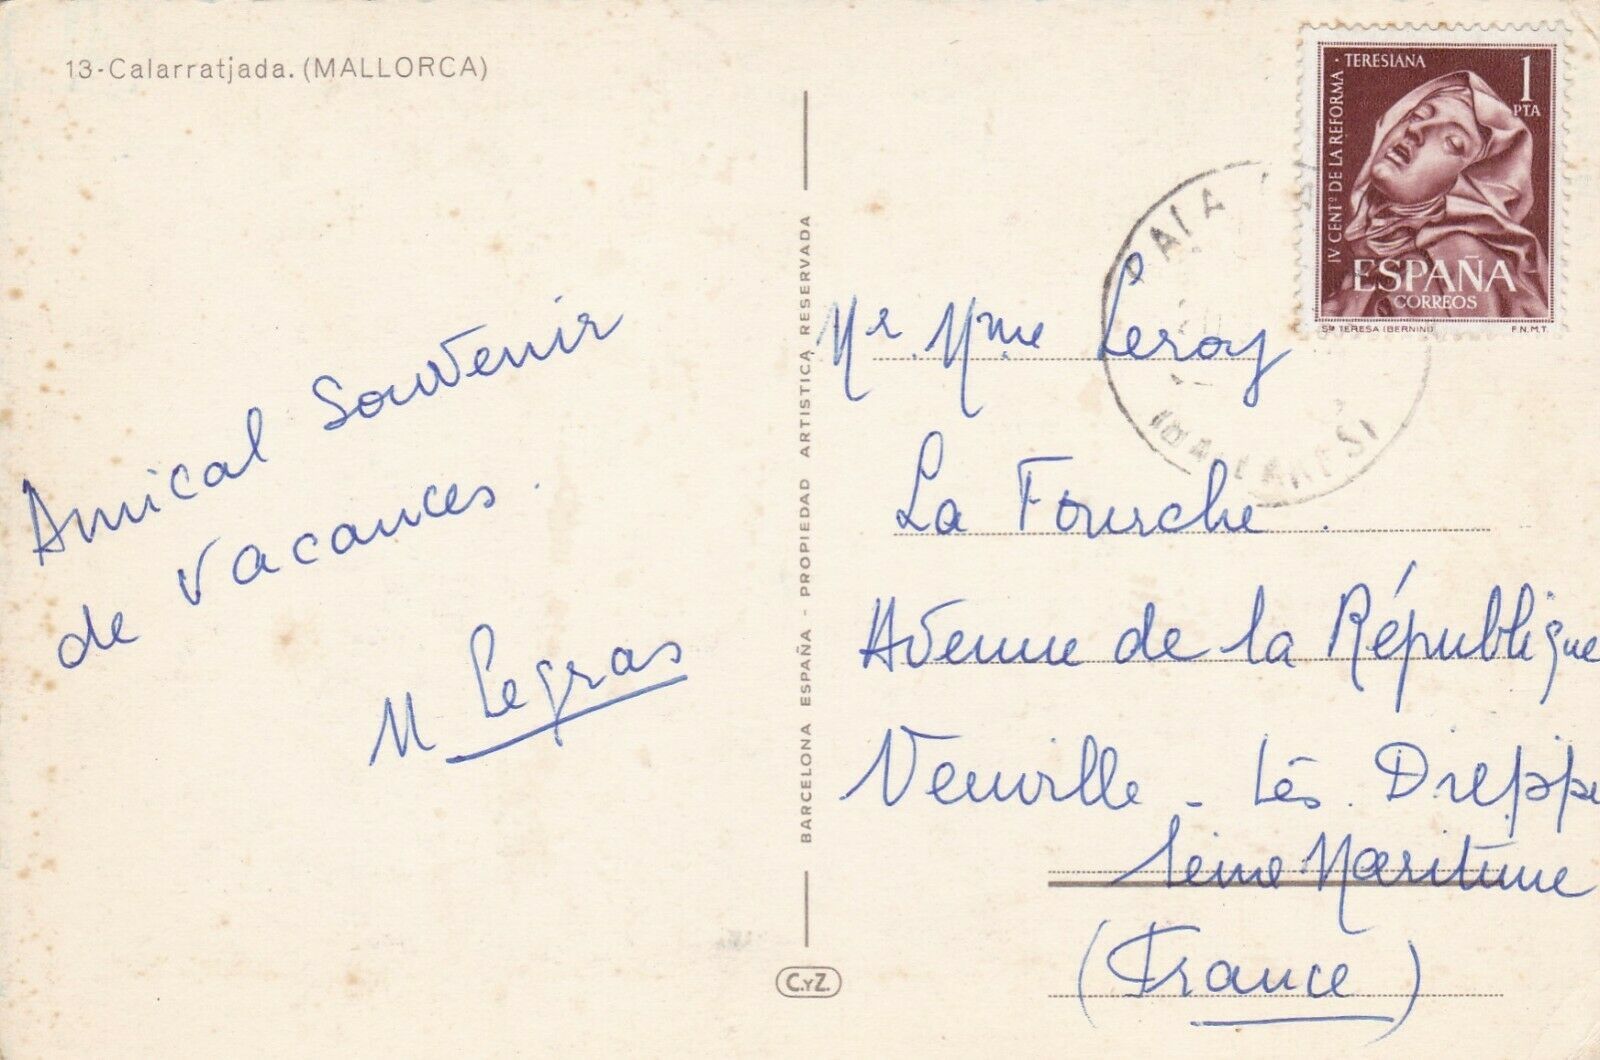 13-Calarratjada. (MALLORCA)
Amical Souvenir
de vacances.
M Legras
BARCELONA ESPAÑA - PROPIEDAD ARTISTICA RESERVADA
C.YZ.
IV CENTº DE LA REFORMA · TERESIANA
1
PTA
ESPAÑA
CORREOS
Sta TERESA (BERNINI)
F.N.M.T.
(BALEARES)
Mr. Mme Leroy
La Fourche.
Avenue de la République
Neuville - Lès. Dieppe
Seine Maritime
(France)